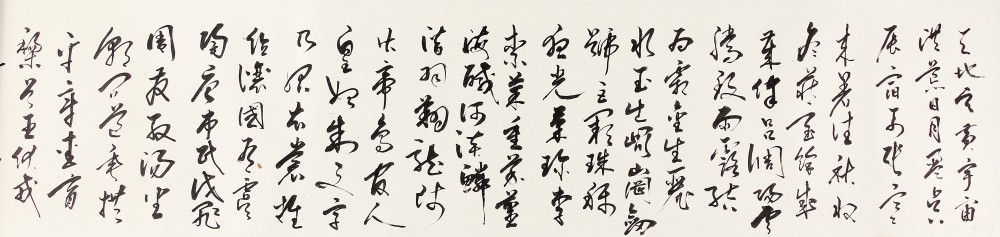 天地玄黃宇宙
洪荒日月盈昃
辰宿列張寒
來暑往秋收
冬藏閏餘成
歲律呂調陽雲
騰致雨露結
為霜金生麗
水玉出崑岡劍
號巨闕珠稱
夜光菓珍李
柰菜重芥薑
海鹹河淡鱗
潛羽翔龍師
火帝鳥官人
皇始制文字
乃服衣裳推
位讓國有虞
陶唐弔民伐罪
周發殷湯坐
朝問道垂拱
平章愛育
黎首臣伏戎